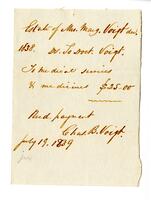 Estate of Mrs Mary Voigt dec.
1838. Dr. To Doct. Voigt.
To medical services
& medicines $25.00
Recd payment
Chas. B. Voigt.
July 19. 1839